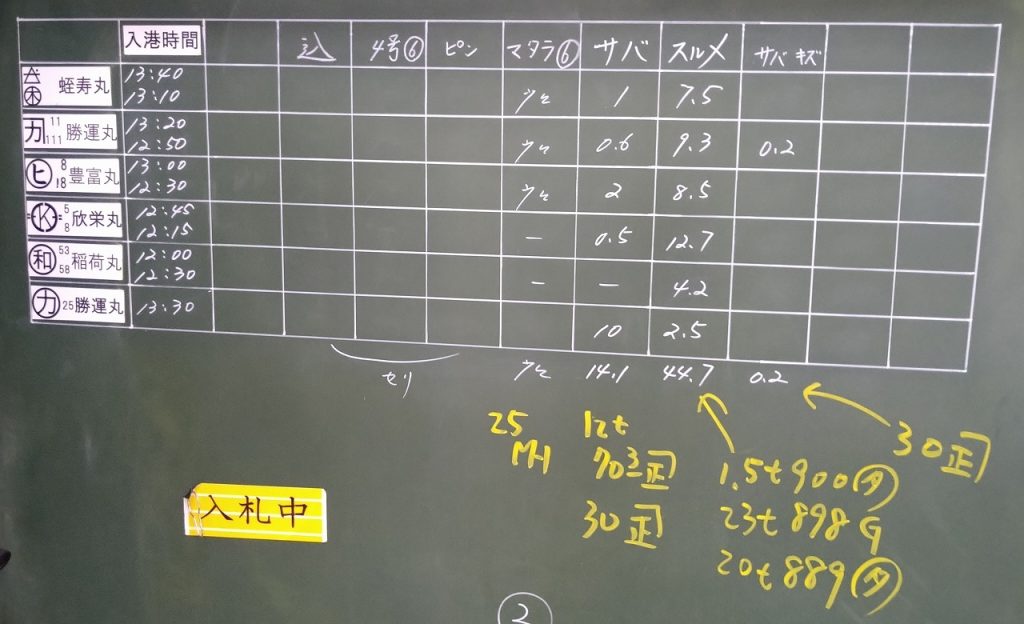 入港時間 込 4号⑥ ピン マタラ⑥ サバ スルメ サバキズ
蛭寿丸 13:40 13:10 1 7.5
カ 11 111 勝運丸 13:20 12:50 0.6 9.3 0.2
ヒ 8 18 豊富丸 13:00 12:30 2 8.5
K 5 8 欣栄丸 12:45 12:15 － 0.5 12.7
和 53 58 稲荷丸 12:00 12:30 － － 4.2
カ 25 勝運丸 13:30 10 2.5
セリ 14.1 44.7 0.2
25 12t
30
1.5t 900
30 23t 898
20t 889
入札中